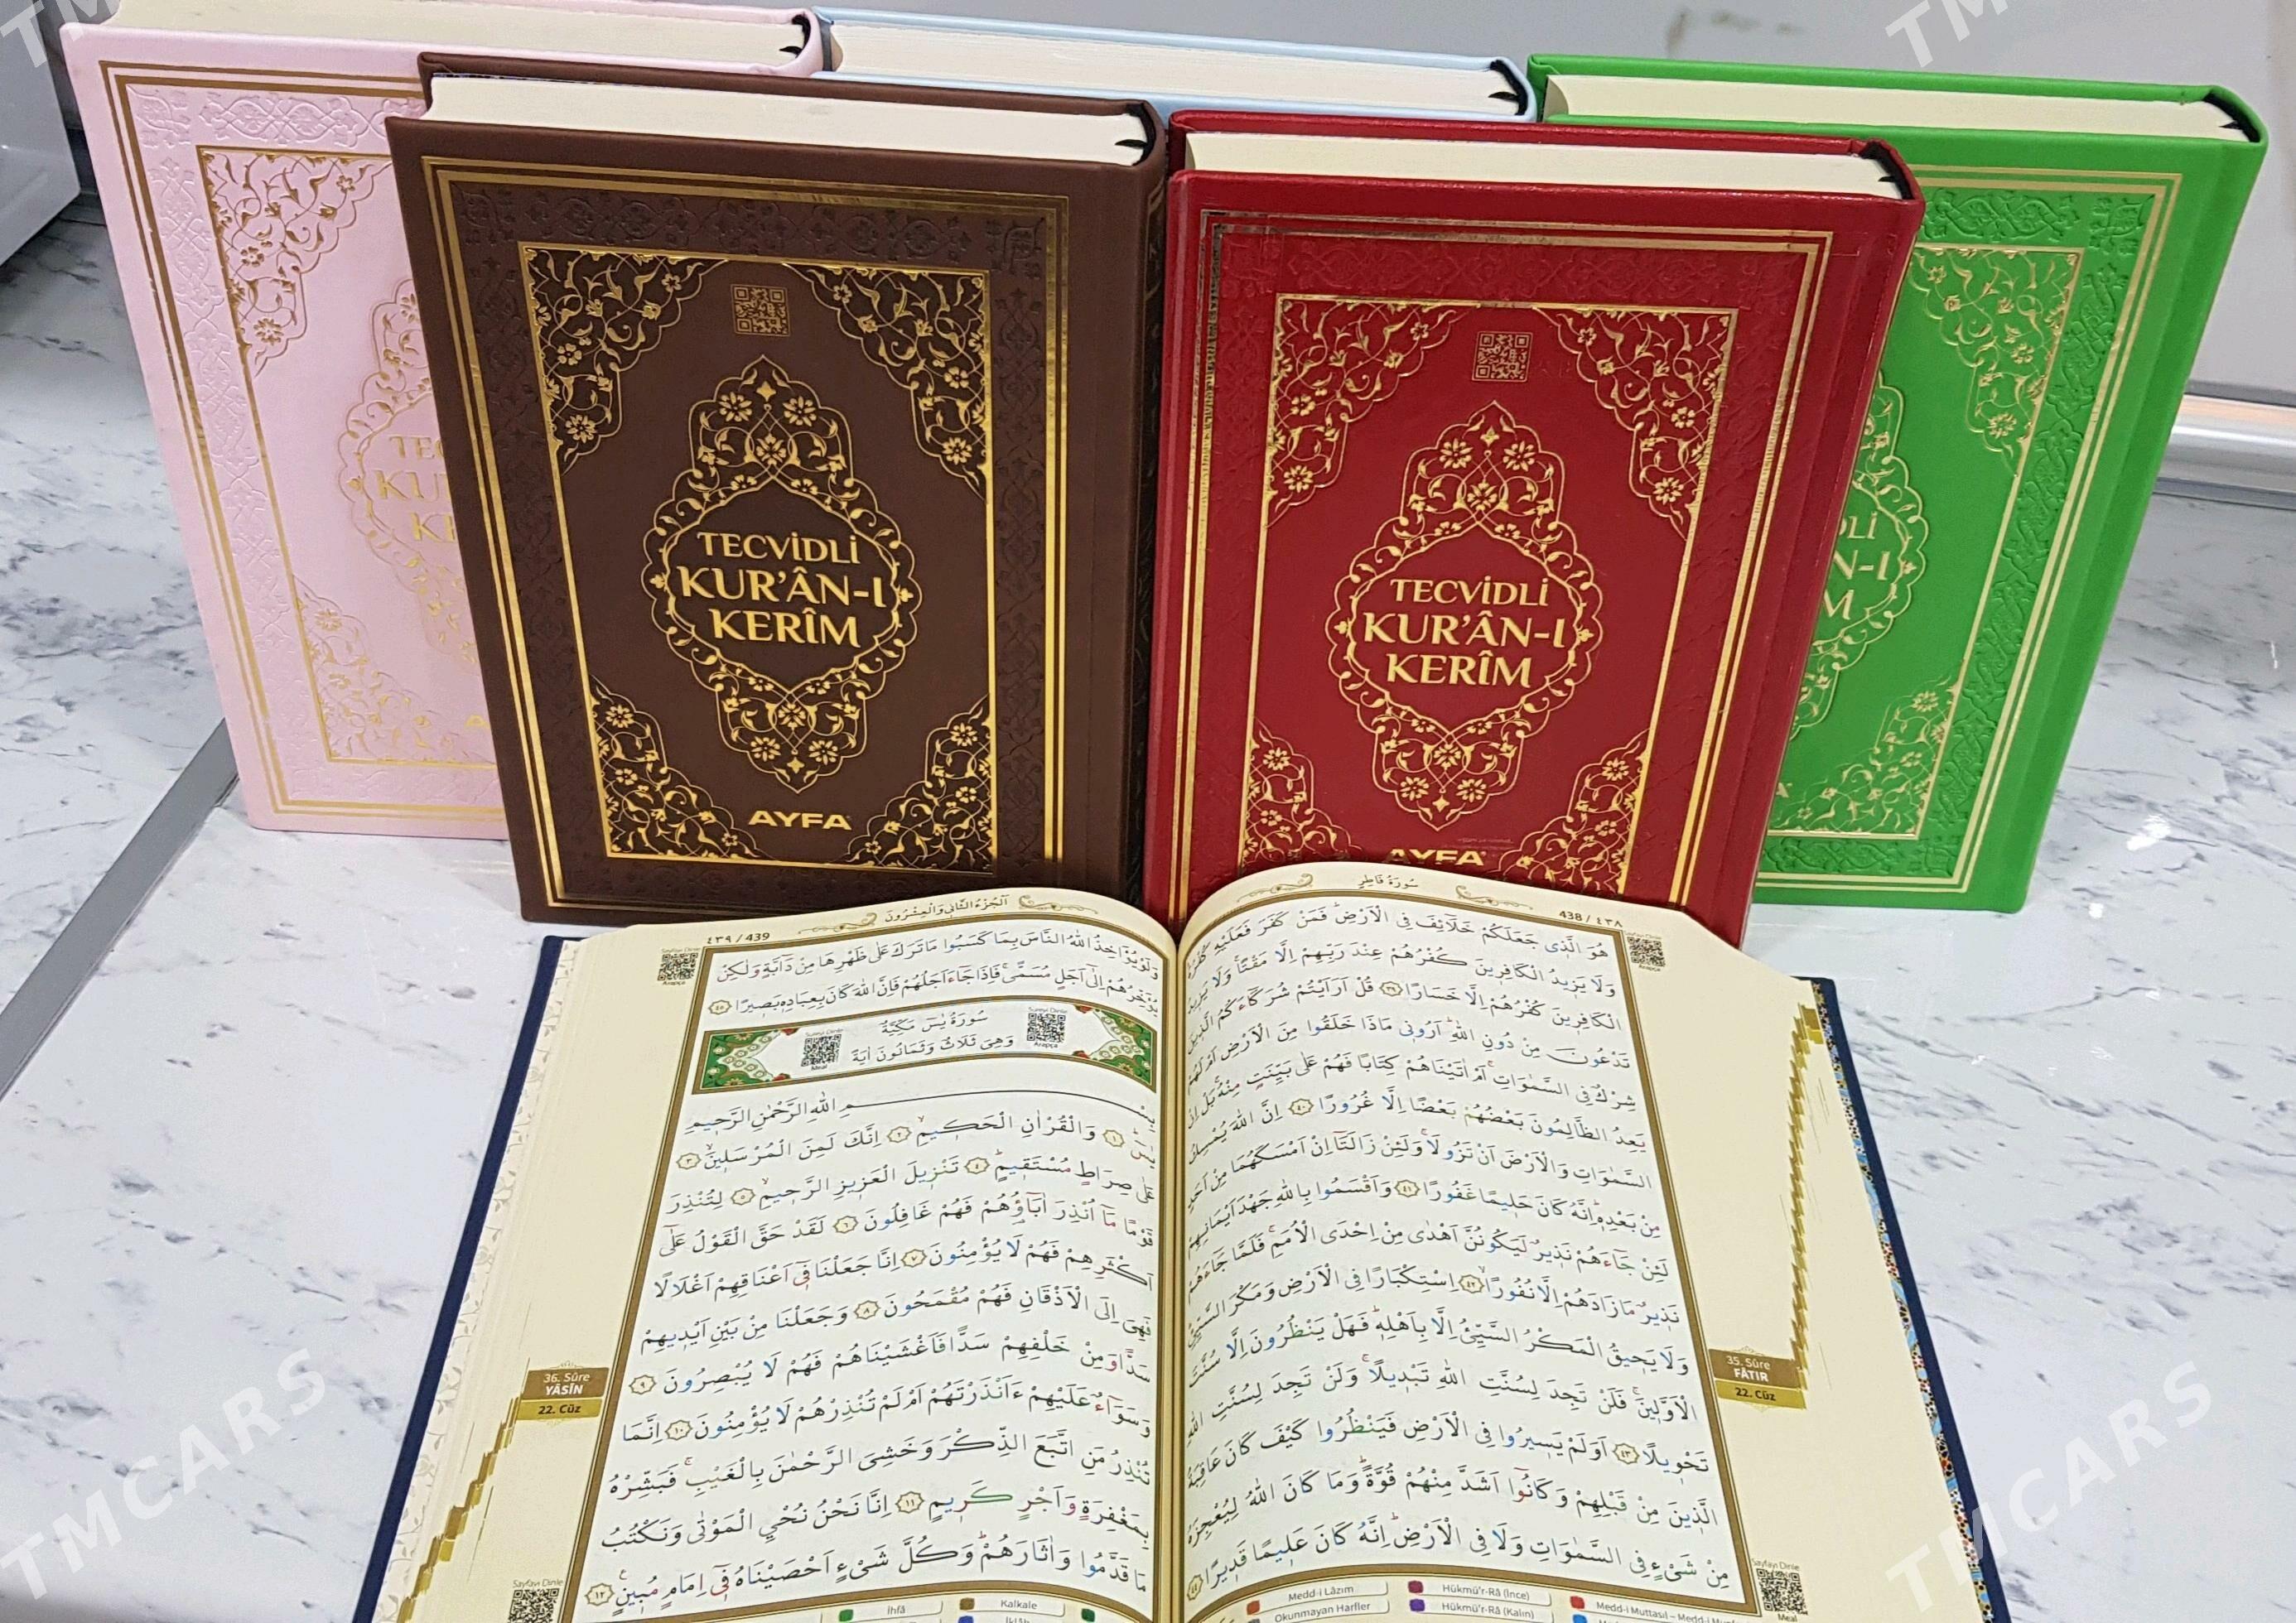 TMCARS
TECVİDLİ
KUR'ÂN-I
KERÎM
AYFA
TECVİDLİ
KUR'ÂN-I
KERÎM
AYFA
سُورَةُ فَاطِرٍ
438 / ٤٣٨
هُوَ الَّذ۪ي جَعَلَكُمْ خَلَٓائِفَ فِي الْاَرْضِۜ فَمَنْ كَفَرَ فَعَلَيْهِ كُفْرُهُۜ
وَلَا يَز۪يدُ الْكَافِر۪ينَ كُفْرُهُمْ عِنْدَ رَبِّهِمْ اِلَّا مَقْتاًۚ وَلَا يَز۪يدُ
الْكَافِر۪ينَ كُفْرُهُمْ اِلَّا خَسَاراً ٣٩ قُلْ اَرَاَيْتُمْ شُرَكَٓاءَكُمُ الَّذ۪ينَ
تَدْعُونَ مِنْ دُونِ اللّٰهِۜ اَرُون۪ي مَاذَا خَلَقُوا مِنَ الْاَرْضِ اَمْ لَهُمْ
شِرْكٌ فِي السَّمٰوَاتِۚ اَمْ اٰتَيْنَاهُمْ كِتَاباً فَهُمْ عَلٰى بَيِّنَتٍ مِنْهُۚ بَلْ اِنْ
يَعِدُ الظَّالِمُونَ بَعْضُهُمْ بَعْضاً اِلَّا غُرُوراً ٤٠ اِنَّ اللّٰهَ يُمْسِكُ
السَّمٰوَاتِ وَالْاَرْضَ اَنْ تَزُولَاۚ وَلَئِنْ زَالَتَٓا اِنْ اَمْسَكَهُمَا مِنْ اَحَدٍ
مِنْ بَعْدِه۪ۜ اِنَّهُ كَانَ حَل۪يماً غَفُوراً ٤١ وَاَقْسَمُوا بِاللّٰهِ جَهْدَ اَيْمَانِهِمْ
لَئِنْ جَٓاءَهُمْ نَذ۪يرٌ لَيَكُونُنَّ اَهْدٰى مِنْ اِحْدَى الْاُمَمِۚ فَلَمَّا جَٓاءَهُمْ
نَذ۪يرٌ مَا زَادَهُمْ اِلَّا نُفُوراًۙ ٤٢ اِسْتِكْبَاراً فِي الْاَرْضِ وَمَكْرَ السَّيِّئِۜ
وَلَا يَح۪يقُ الْمَكْرُ السَّيِّئُ اِلَّا بِاَهْلِه۪ۜ فَهَلْ يَنْظُرُونَ اِلَّا سُنَّتَ
الْاَوَّل۪ينَۚ فَلَنْ تَجِدَ لِسُنَّتِ اللّٰهِ تَبْد۪يلاًۚ وَلَنْ تَجِدَ لِسُنَّتِ اللّٰهِ
تَحْو۪يلاً ٤٣ اَوَلَمْ يَس۪يرُوا فِي الْاَرْضِ فَيَنْظُرُوا كَيْفَ كَانَ عَاقِبَةُ
الَّذ۪ينَ مِنْ قَبْلِهِمْ وَكَانُٓوا اَشَدَّ مِنْهُمْ قُوَّةًۜ وَمَا كَانَ اللّٰهُ لِيُعْجِزَهُ
مِنْ شَيْءٍ فِي السَّمٰوَاتِ وَلَا فِي الْاَرْضِۜ اِنَّهُ كَانَ عَل۪يماً قَد۪يراً ٤٤
35. Sûre
FÂTIR
22. Cüz
Sayfayı Dinle
Meal
Medd-i Lâzım
Hükmü'r-Râ (İnce)
Okunmayan Harfler
Hükmü'r-Râ (Kalın)
اَلْجُزْءُ الثَّانِي وَالْعِشْرُونَ
٤٣٩ / 439
Sayfayı Dinle
Arapça
وَلَوْ يُؤَاخِذُ اللّٰهُ النَّاسَ بِمَا كَسَبُوا مَا تَرَكَ عَلٰى ظَهْرِهَا مِنْ دَٓابَّةٍ وَلٰكِنْ
يُؤَخِّرُهُمْ اِلٰٓى اَجَلٍ مُسَمًّىۚ فَاِذَا جَٓاءَ اَجَلُهُمْ فَاِنَّ اللّٰهَ كَانَ بِعِبَادِه۪ بَص۪يراً ٤٥
سُورَةُ يٰسٓ مَكِّيَّةٌ
وَهِيَ ثَلَاثٌ وَثَمَانُونَ اٰيَةً
Sureyi Dinle
Arapça
Sureyi Dinle
Meal
بِسْمِ اللّٰهِ الرَّحْمٰنِ الرَّح۪يمِ
يٰسٓۜ ١ وَالْقُرْاٰنِ الْحَك۪يمِۙ ٢ اِنَّكَ لَمِنَ الْمُرْسَل۪ينَۙ ٣
عَلٰى صِرَاطٍ مُسْتَق۪يمٍۜ ٤ تَنْز۪يلَ الْعَز۪يزِ الرَّح۪يمِۙ ٥ لِتُنْذِرَ
قَوْماً مَٓا اُنْذِرَ اٰبَٓاؤُ۬هُمْ فَهُمْ غَافِلُونَ ٦ لَقَدْ حَقَّ الْقَوْلُ عَلٰٓى
اَكْثَرِهِمْ فَهُمْ لَا يُؤْمِنُونَ ٧ اِنَّا جَعَلْنَا ف۪ٓي اَعْنَاقِهِمْ اَغْلَالاً
فَهِيَ اِلَى الْاَذْقَانِ فَهُمْ مُقْمَحُونَ ٨ وَجَعَلْنَا مِنْ بَيْنِ اَيْد۪يهِمْ
سَداًّ وَمِنْ خَلْفِهِمْ سَداًّ فَاَغْشَيْنَاهُمْ فَهُمْ لَا يُبْصِرُونَ ٩
وَسَوَٓاءٌ عَلَيْهِمْ ءَاَنْذَرْتَهُمْ اَمْ لَمْ تُنْذِرْهُمْ لَا يُؤْمِنُونَ ١٠ اِنَّمَا
تُنْذِرُ مَنِ اتَّبَعَ الذِّكْرَ وَخَشِيَ الرَّحْمٰنَ بِالْغَيْبِۚ فَبَشِّرْهُ
بِمَغْفِرَةٍ وَاَجْرٍ كَر۪يمٍ ١١ اِنَّا نَحْنُ نُحْيِ الْمَوْتٰى وَنَكْتُبُ
مَا قَدَّمُوا وَاٰثَارَهُمْۜ وَكُلَّ شَيْءٍ اَحْصَيْنَاهُ ف۪ٓي اِمَامٍ مُب۪ينٍ۟ ١٢
36. Sûre
YÂSÎN
22. Cüz
Sayfayı Dinle
İhfâ
Kalkale
TMCARS
TMCARS